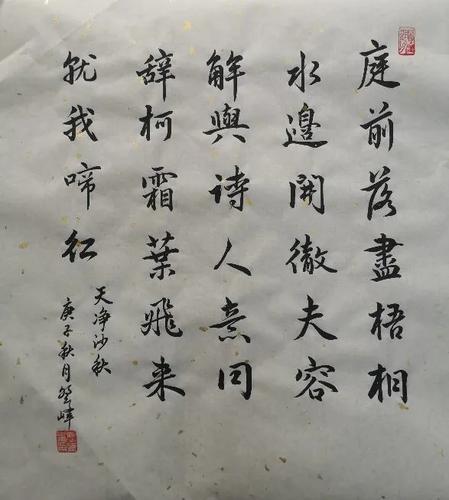 庭前落盡梧桐
水邊開徹夫容
解與诗人意同
辭柯霜葉飛来
就我啼红
天净沙秋
庚子秋月峰